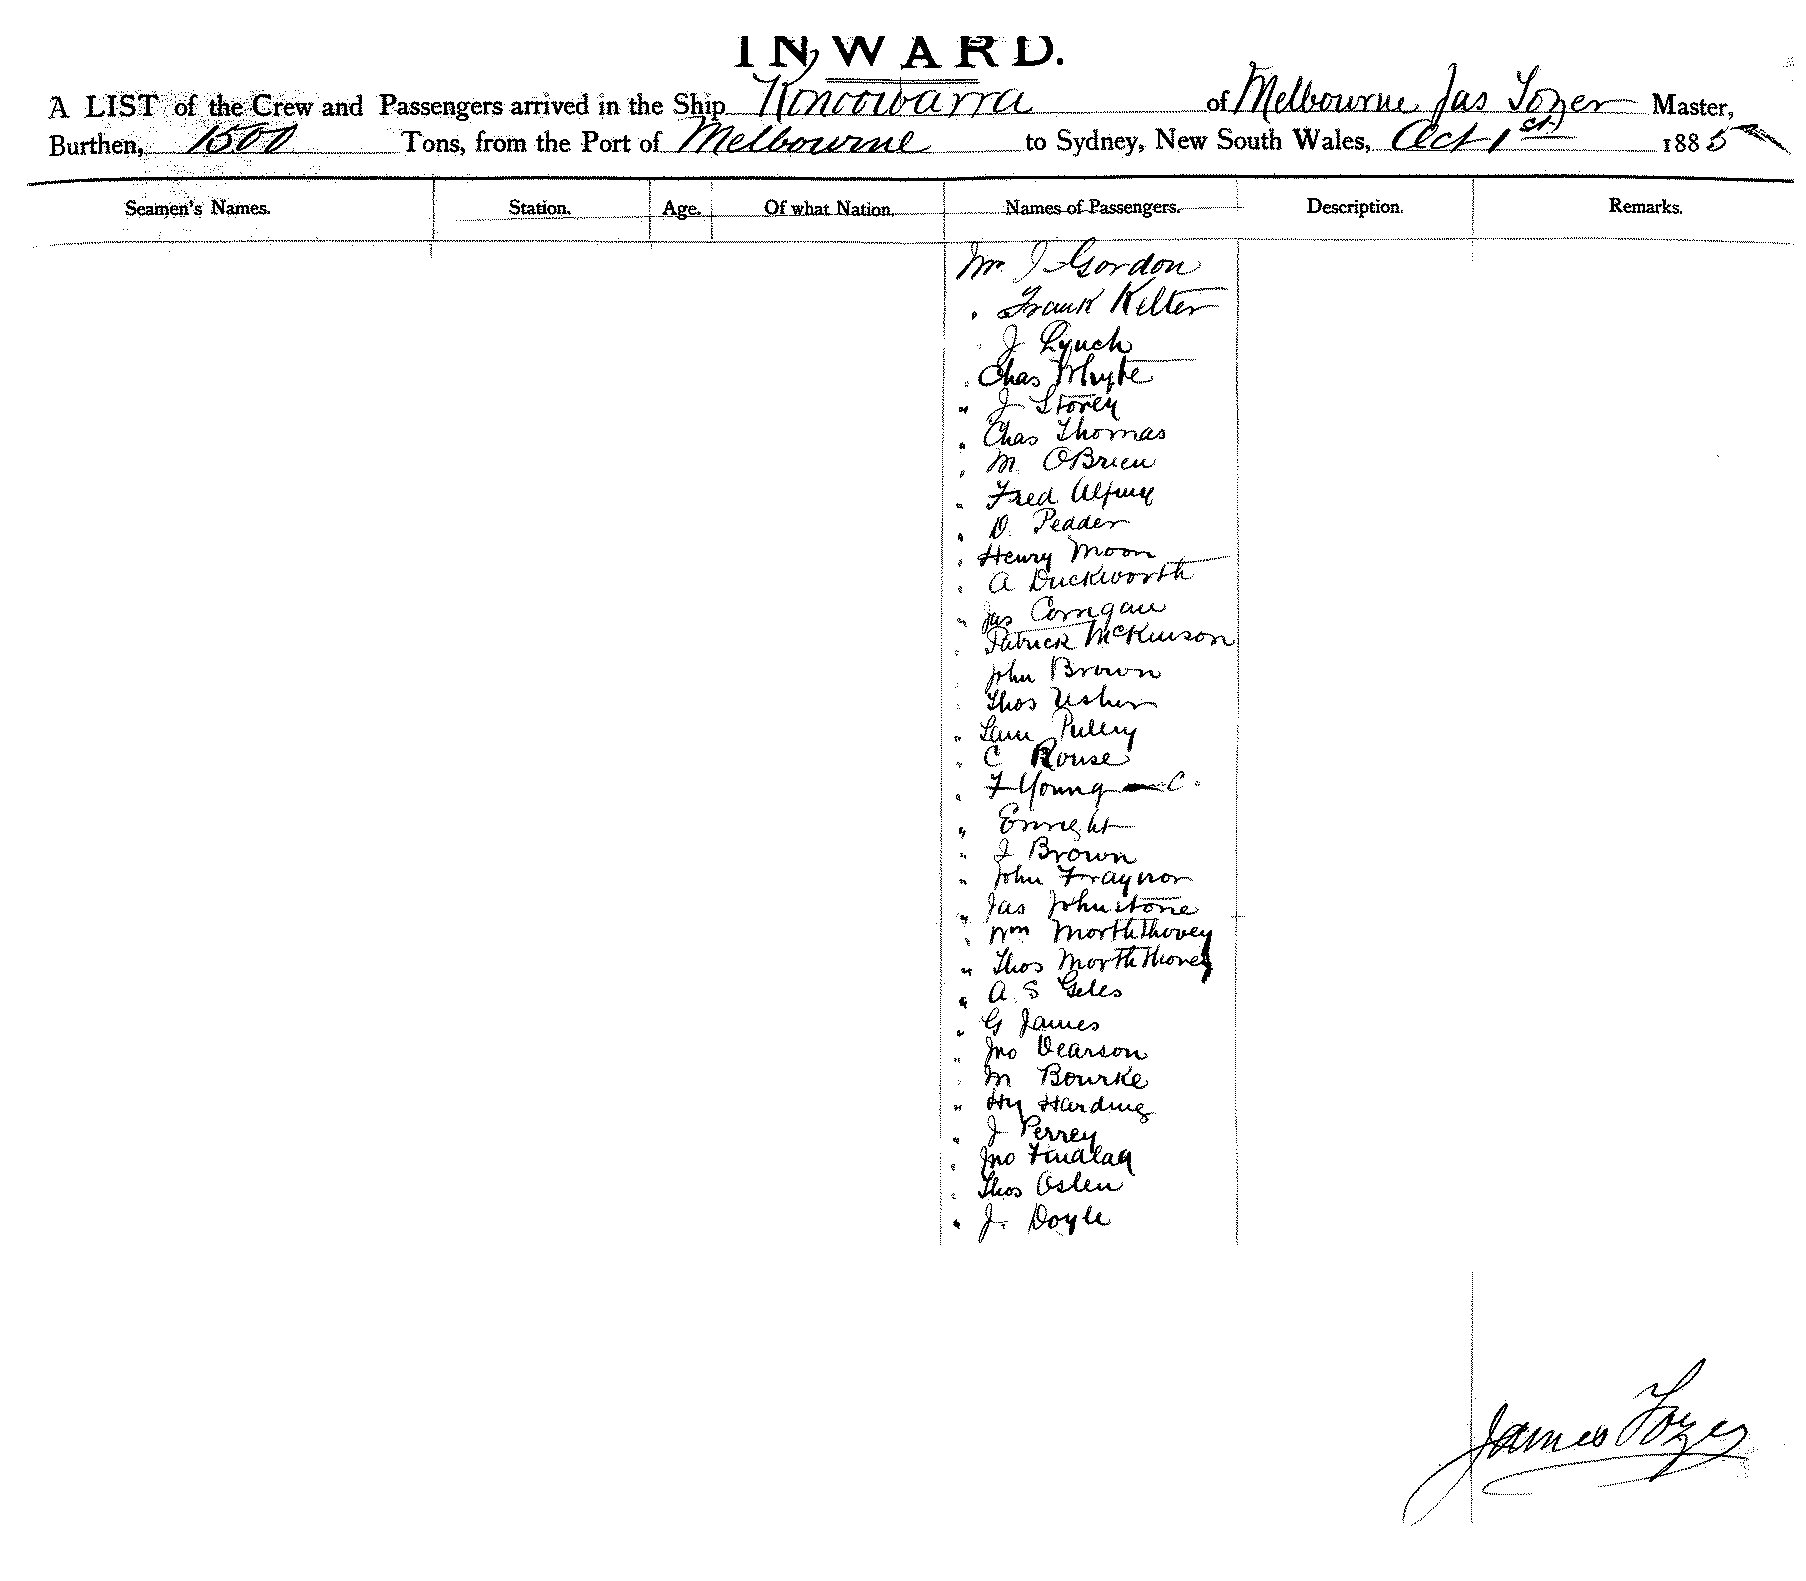 INWARD.
A LIST of the Crew and Passengers arrived in the Ship Konoowarra of Melbourne Jas Tozer Master,
Burthen, 1500 Tons, from the Port of Melbourne to Sydney, New South Wales, Oct 1st 1885
Seamen's Names. Station. Age. Of what Nation. Names of Passengers. Description. Remarks.
Mr J Gordon
" Frank Kelter
" J Lynch
" Chas Whyte
" J Storey
" Chas Thomas
" M OBrien
" Fred
" D. Pedder
" Henry Moon
" A Duckworth
" Jas Corrigan
" Patrick McKinson
John Brown
" Thos Usher
" Pulley
" C Rouse
" F Young C.
" Enright
" J Brown
" John Fraynor
" Jas Johnstone
" Wm Morththovey
" Thos Morththovey
" A. S Geles
" G James
" Jno Dearson
" M Bourke
" Hy Harding
" J Perrey
" Jno Findlay
" Thos Oslen
" J. Doyle
James Tozer